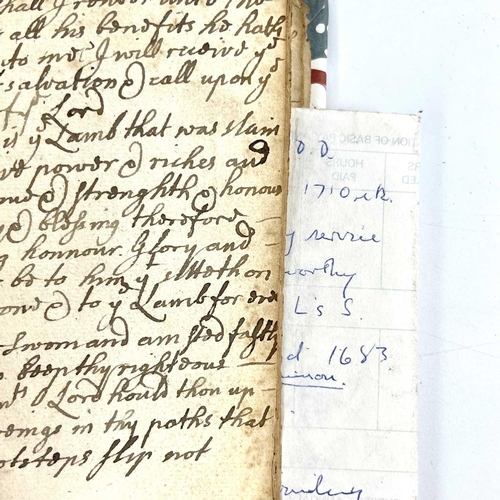 shall I render unto the
all his benefits he hath
to me I will receive yᵉ
salvation & call upon yᵉ
Lord
is yᵉ Lamb that was slain
power & riches and
& strenghth & honour
& blessing therefore —
honnour. Glory and —
be to him yᵗ sitteth on
& to yᵉ Lamb for ever
sworn and am stedfastly
keep thy righteous —
Lord hould thou up —
goeings in thy paths that
footsteps slip not
TION OF BASIC PA
HOURS
PAID
D. D.
1710
service
worthy
L's S.
1683